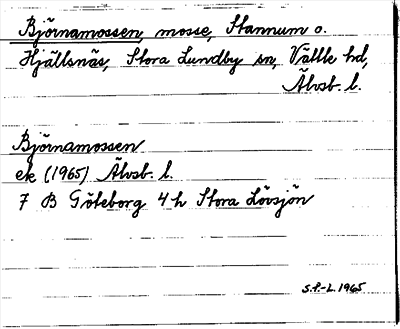 Björnamossen, mosse, Stannum o.
Hjällsnäs, Stora Lundby sn, Vättle hd,
Älvsb. l.
Björnamossen
ek (1965) Älvsb. l.
7 B Göteborg 4 h Stora Lövsjön
S.P.-L. 1965